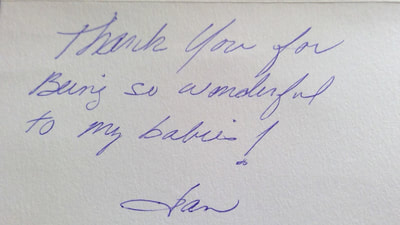 Thank You for
Being so wonderful
to my babies!
Jean